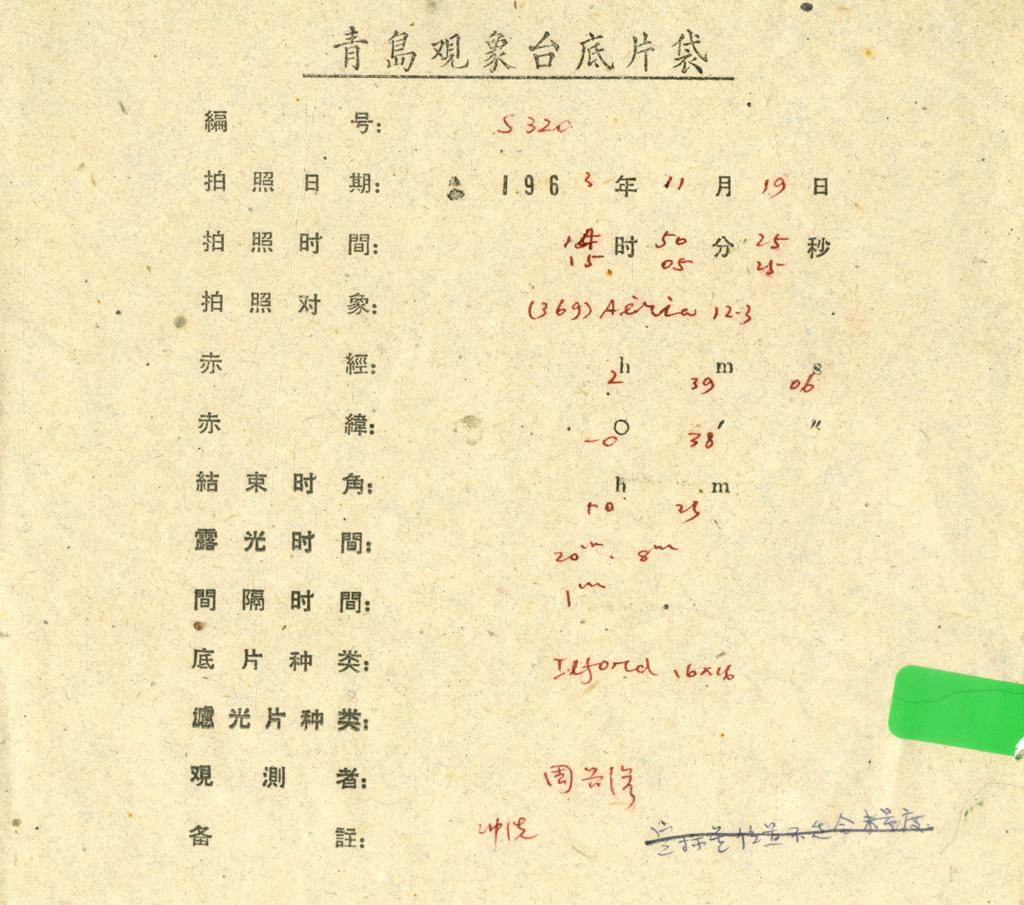 青島观象台底片袋
編号: S 320
拍照日期: 1963年11月19日
拍照时間: 14时50分25秒
15 05 25
拍照对象: (369) Aëria 12.3
赤經: 2h 39m 06s
赤緯: -0° 38′ ″
結束时角: +0h 25m
露光时間: 20m. 8m
間隔时間: 1m
底片种类: Ilford 16×16
濾光片种类:
观測者: 周
备註: 冲洗